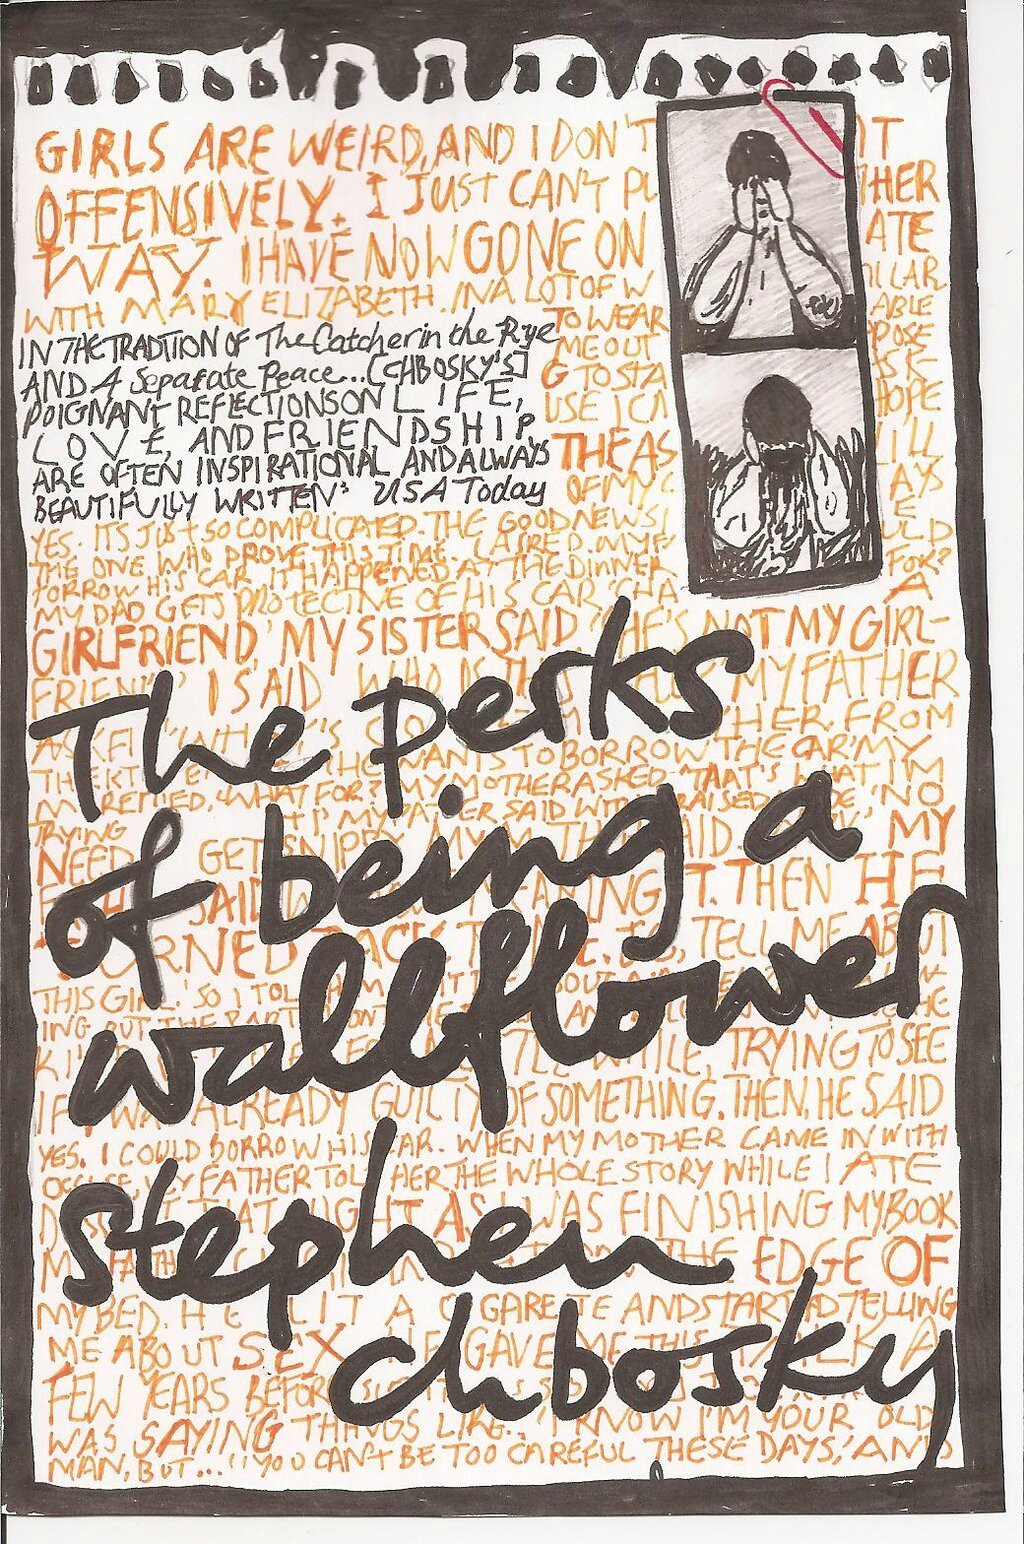 GIRLS ARE WEIRD, AND I DON'T IT
OFFENSIVELY. I JUST CAN'T PU THER
WAY. I HAVE NOW GONE ON ATE
WITH MARY ELIZABETH. IN A LOT OF W ILAR
TO WEAR ABLE
IN THE TRADITION OF The Catcher in the Rye
ME OUT POSE
AND A Separate Peace...[CHBOSKY'S]
G TO STA SK
POIGNANT REFLECTIONS ON LIFE,
USE I CA HOPE
LOVE, AND FRIENDSHIP,
THE AS I'LL
ARE OFTEN INSPIRATIONAL AND ALWAYS
OF MY AYS
BEAUTIFULLY WRITTEN" USA Today
YES. ITS JUST SO COMPLICATED. THE GOOD NEWS I E
THE ONE WHO DROVE THIS TIME. I ASKED MY F ULD
BORROW HIS CAR. IT HAPPENED AT THE DINNER FOR?
MY DAD GETS PROTECTIVE OF HIS CAR. 'CHA A
GIRLFRIEND,' MY SISTER SAID 'SHE'S NOT MY GIRL-
FRIEND' I SAID 'WHO IS THIS MY FATHER
The perks
HER FROM
WANTS TO BORROW THE CAR' MY
WHAT FOR?' MY MOTHER ASKED. 'THAT'S WHAT I'M
TRYING MY FATHER SAID WITH RAISED 'NO
NEED GET SNIPPY MY SAID MY
of being a
SAID THEN HE
TURNED BACK TO ME. TELL ME ABOUT
THIS GIRL.' SO I TOLD
wallflower
WHILE, TRYING TO SEE
IF I WAS ALREADY GUILTY OF SOMETHING. THEN, HE SAID
YES. I COULD BORROW HIS CAR. WHEN MY MOTHER CAME IN WITH
MY FATHER TOLD HER THE WHOLE STORY WHILE I ATE
THAT NIGHT AS I WAS FINISHING MY BOOK
stephen
THE EDGE OF
MY BED. HE LIT A CIGARETTE AND STARTED TELLING
ME ABOUT SEX. HE GAVE ME THIS TALK A
chbosky
FEW YEARS BEFORE
WAS SAYING THINGS LIKE, 'I KNOW I'M YOUR OLD
MAN, BUT... "YOU CAN'T BE TOO CAREFUL THESE DAYS,' AND